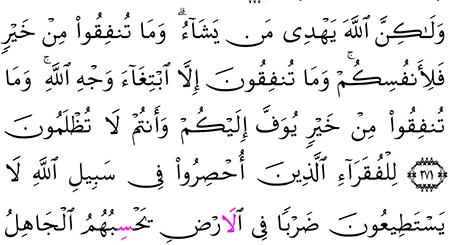 وَلَٰكِنَّ ٱللَّهَ يَهْدِى مَن يَشَآءُ ۗ وَمَا تُنفِقُوا۟ مِنْ خَيْرٍ
فَلِأَنفُسِكُمْ ۚ وَمَا تُنفِقُونَ إِلَّا ٱبْتِغَآءَ وَجْهِ ٱللَّهِ ۚ وَمَا
تُنفِقُوا۟ مِنْ خَيْرٍ يُوَفَّ إِلَيْكُمْ وَأَنتُمْ لَا تُظْلَمُونَ
﴿٢٧١﴾ لِلْفُقَرَآءِ ٱلَّذِينَ أُحْصِرُوا۟ فِى سَبِيلِ ٱللَّهِ لَا
يَسْتَطِيعُونَ ضَرْبًا فِى ٱلَارْضِ يَحْسِبُهُمُ ٱلْجَاهِلُ